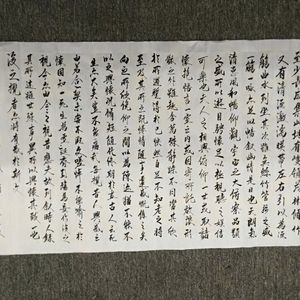 又有清流激湍映帶左右引以為流
觴曲水列坐其次雖無絲竹管弦之盛
一觴一詠亦足以暢敘幽情是日也天朗氣
清惠風和暢仰觀宇宙之大俯察品類
之盛所以遊目騁懷足以極視聽之娛信
可樂也夫人之相與俯仰一世或取諸
懷抱悟言一室之內或因寄所託放浪形
骸之外雖趣舍萬殊靜躁不同當其欣
於所遇暫得於己快然自足不知老之將
至及其所之既惓情隨事遷感慨係之矣
向之所欣俛仰之間以為陳迹猶不能不
以之興懷況脩短隨化終期於盡古人云
死生亦大矣豈不痛哉每攬昔人興感之
由若合一契未嘗不臨文嗟悼不能喻之於
懷固知一死生為虛誕齊彭殤為妄作後之
視今亦由今之視昔悲夫故列敘時人錄
其所述雖世殊事異所以興懷其致一也
後之攬者亦將有感於斯文